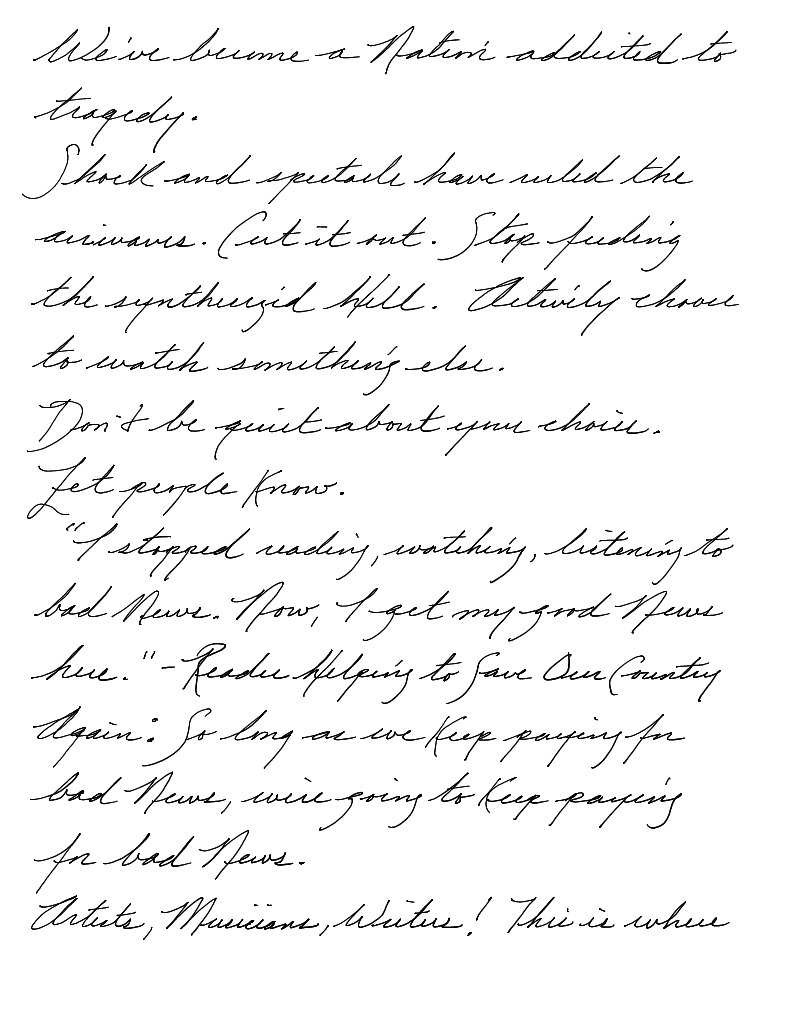 We've become a Nation addicted to
tragedy.
Shock and spectacle have ruled the
airwaves. Cut it out. Stop feeding
the synthesized Hell. Actively choose
to watch something else.
Don't be quiet about your choice.
Let people Know.
"I stopped reading, watching, listening to
bad News. Now, I get my good News
here." - Reader Helping to Save Our Country
Again: So long as we Keep paying for
bad News, we're going to Keep paying
for bad News.
Artists, Musicians, Writers! This is where